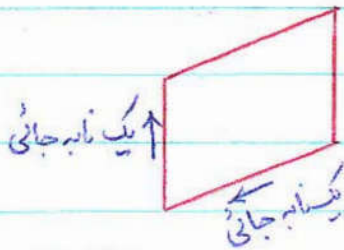 یک نابه جائی
یک نابه جائی